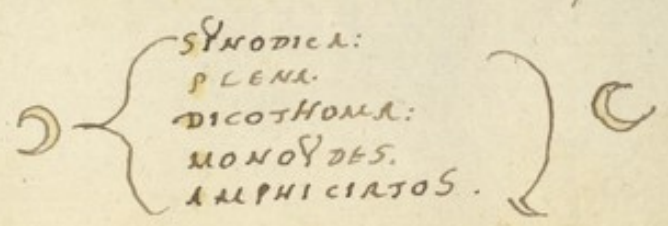 SYNODICA:
PLENA.
DICOTHOMA:
MONOYDES.
AMPHICIRTOS.